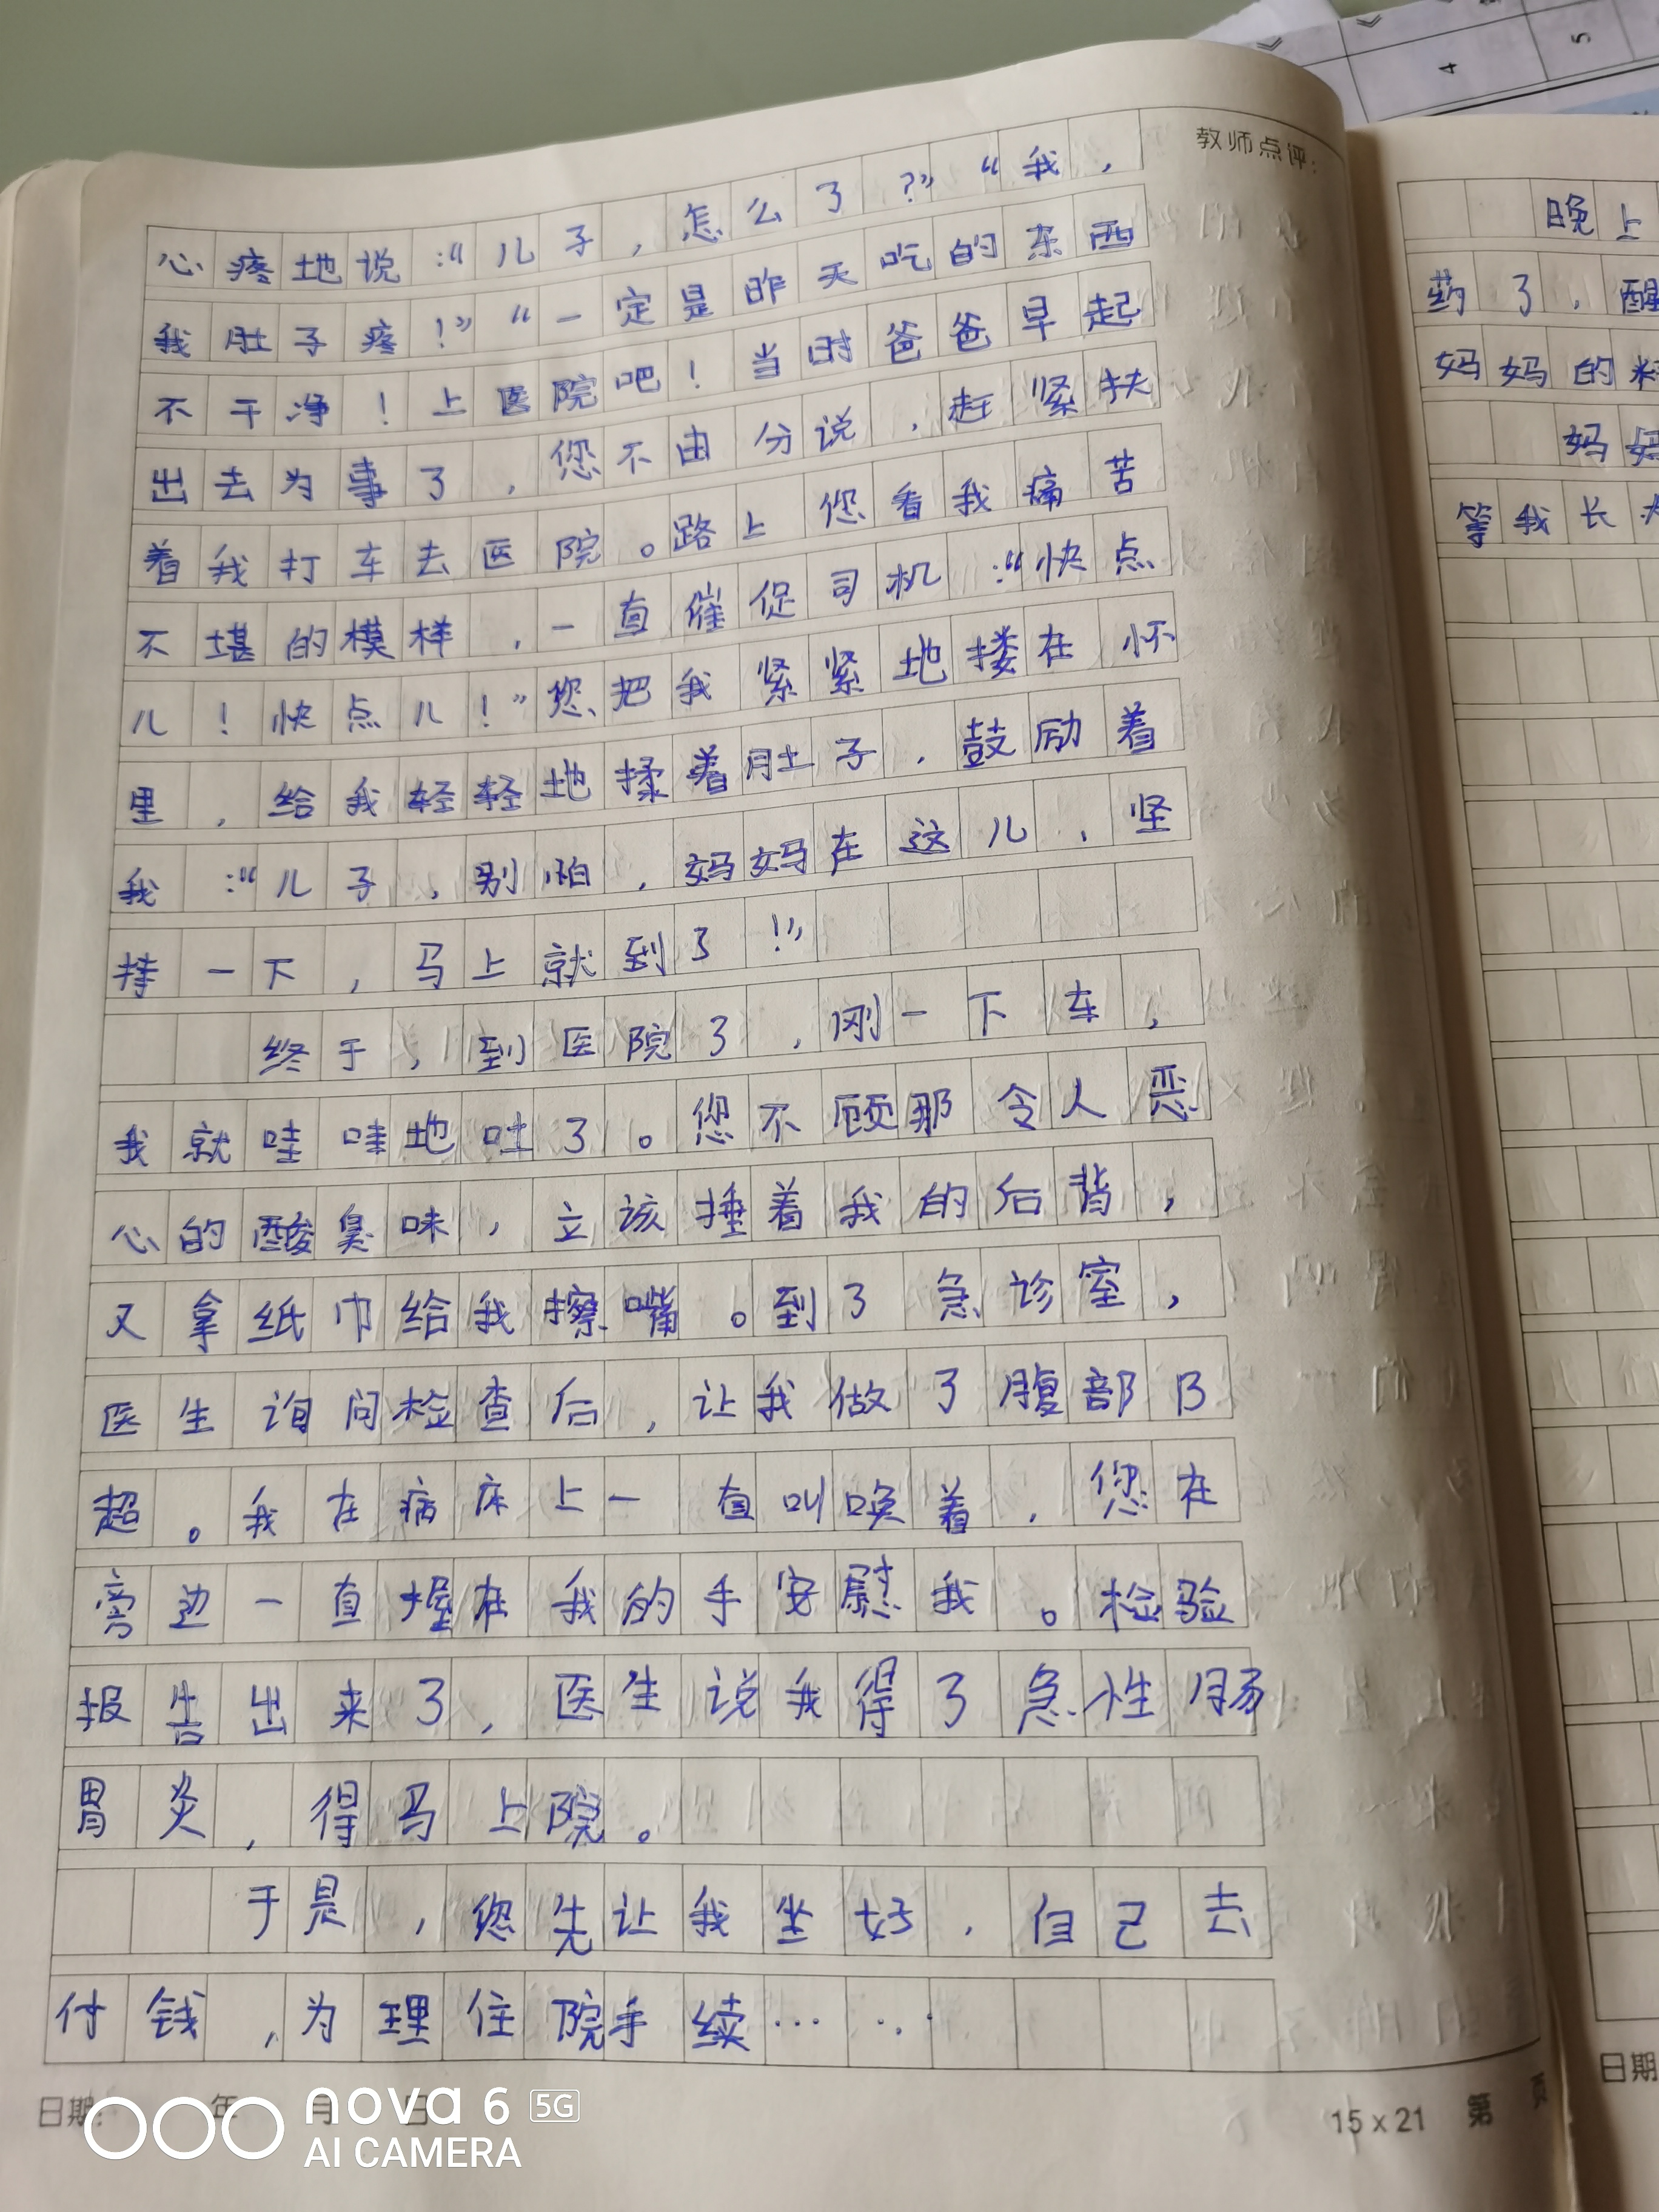 教师点评:
心疼地说:“儿子,怎么了?”“我,
我肚子疼!”“一定是昨天吃的东西
不干净!上医院吧!当时爸爸早起
出去为事了,您不由分说,赶紧扶
着我打车去医院。路上您看我痛苦
不堪的模样,一直催促司机:“快点
儿!快点儿!”您把我紧紧地搂在怀
里,给我轻轻地揉着肚子,鼓励着
我:“儿子,别怕,妈妈在这儿,坚
持一下,马上就到了!”
终于,到医院了,刚一下车,
我就哇哇地吐了。您不顾那令人恶
心的酸臭味,立该捶着我的后背,
又拿纸巾给我擦嘴。到了急诊室,
医生询问检查后,让我做了腹部B
超。我在病床上一直叫唤着,您在
旁边一直握在我的手安慰我。检验
报告出来了,医生说我得了急性肠
胃炎,得马上院。
于是,您先让我坐好,自己去
付钱,为理住院手续……
日期: 年 月 日
15×21 第 页
晚上
药了,醒
妈妈的
妈妈
等我长大
日期
4
5
nova 6 5G
AI CAMERA